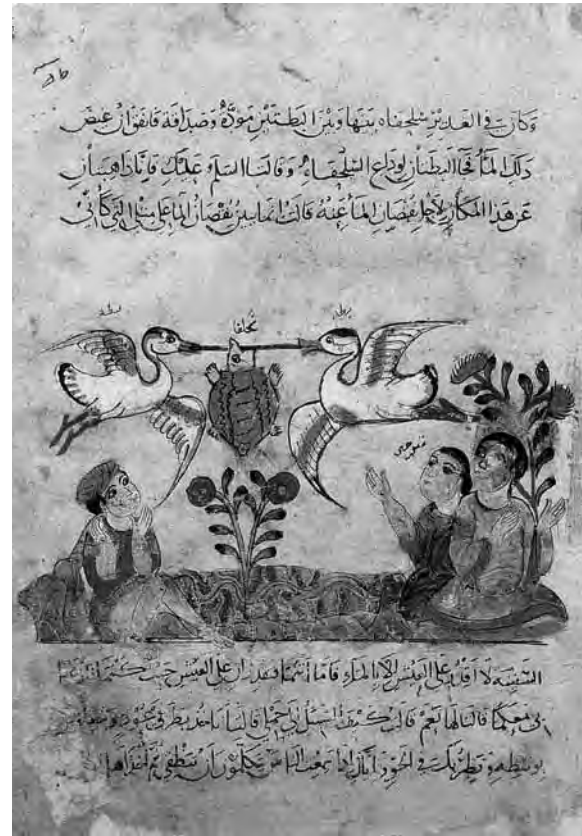 وكان في الغدير سلحفاه بينها وبين البطتين مودة وصداقة فاتفق ان غيض
ذلك الماء فجاء البطتان لوداع السلحفاه وقالتا السلم عليك فاننا ذاهبتان
عن هذا المكان لاجل نقصان الماء عنه قالت انما يبين نقصان الماء على مثلي التي كاني
بطه
بطه
السفينه لا اقدر على العيش الا بالماء فاما أنتما فتقدران على العيش حيث كنتما
بي معكما قالتا لها نعم قالت كيف السبيل الى حملي قالتا ناخذ بطرفي عود
بوسطه ونطير بك في الجو واياك اذا سمعت الناس يتكلمون ان تنطقي ثم اخذاها